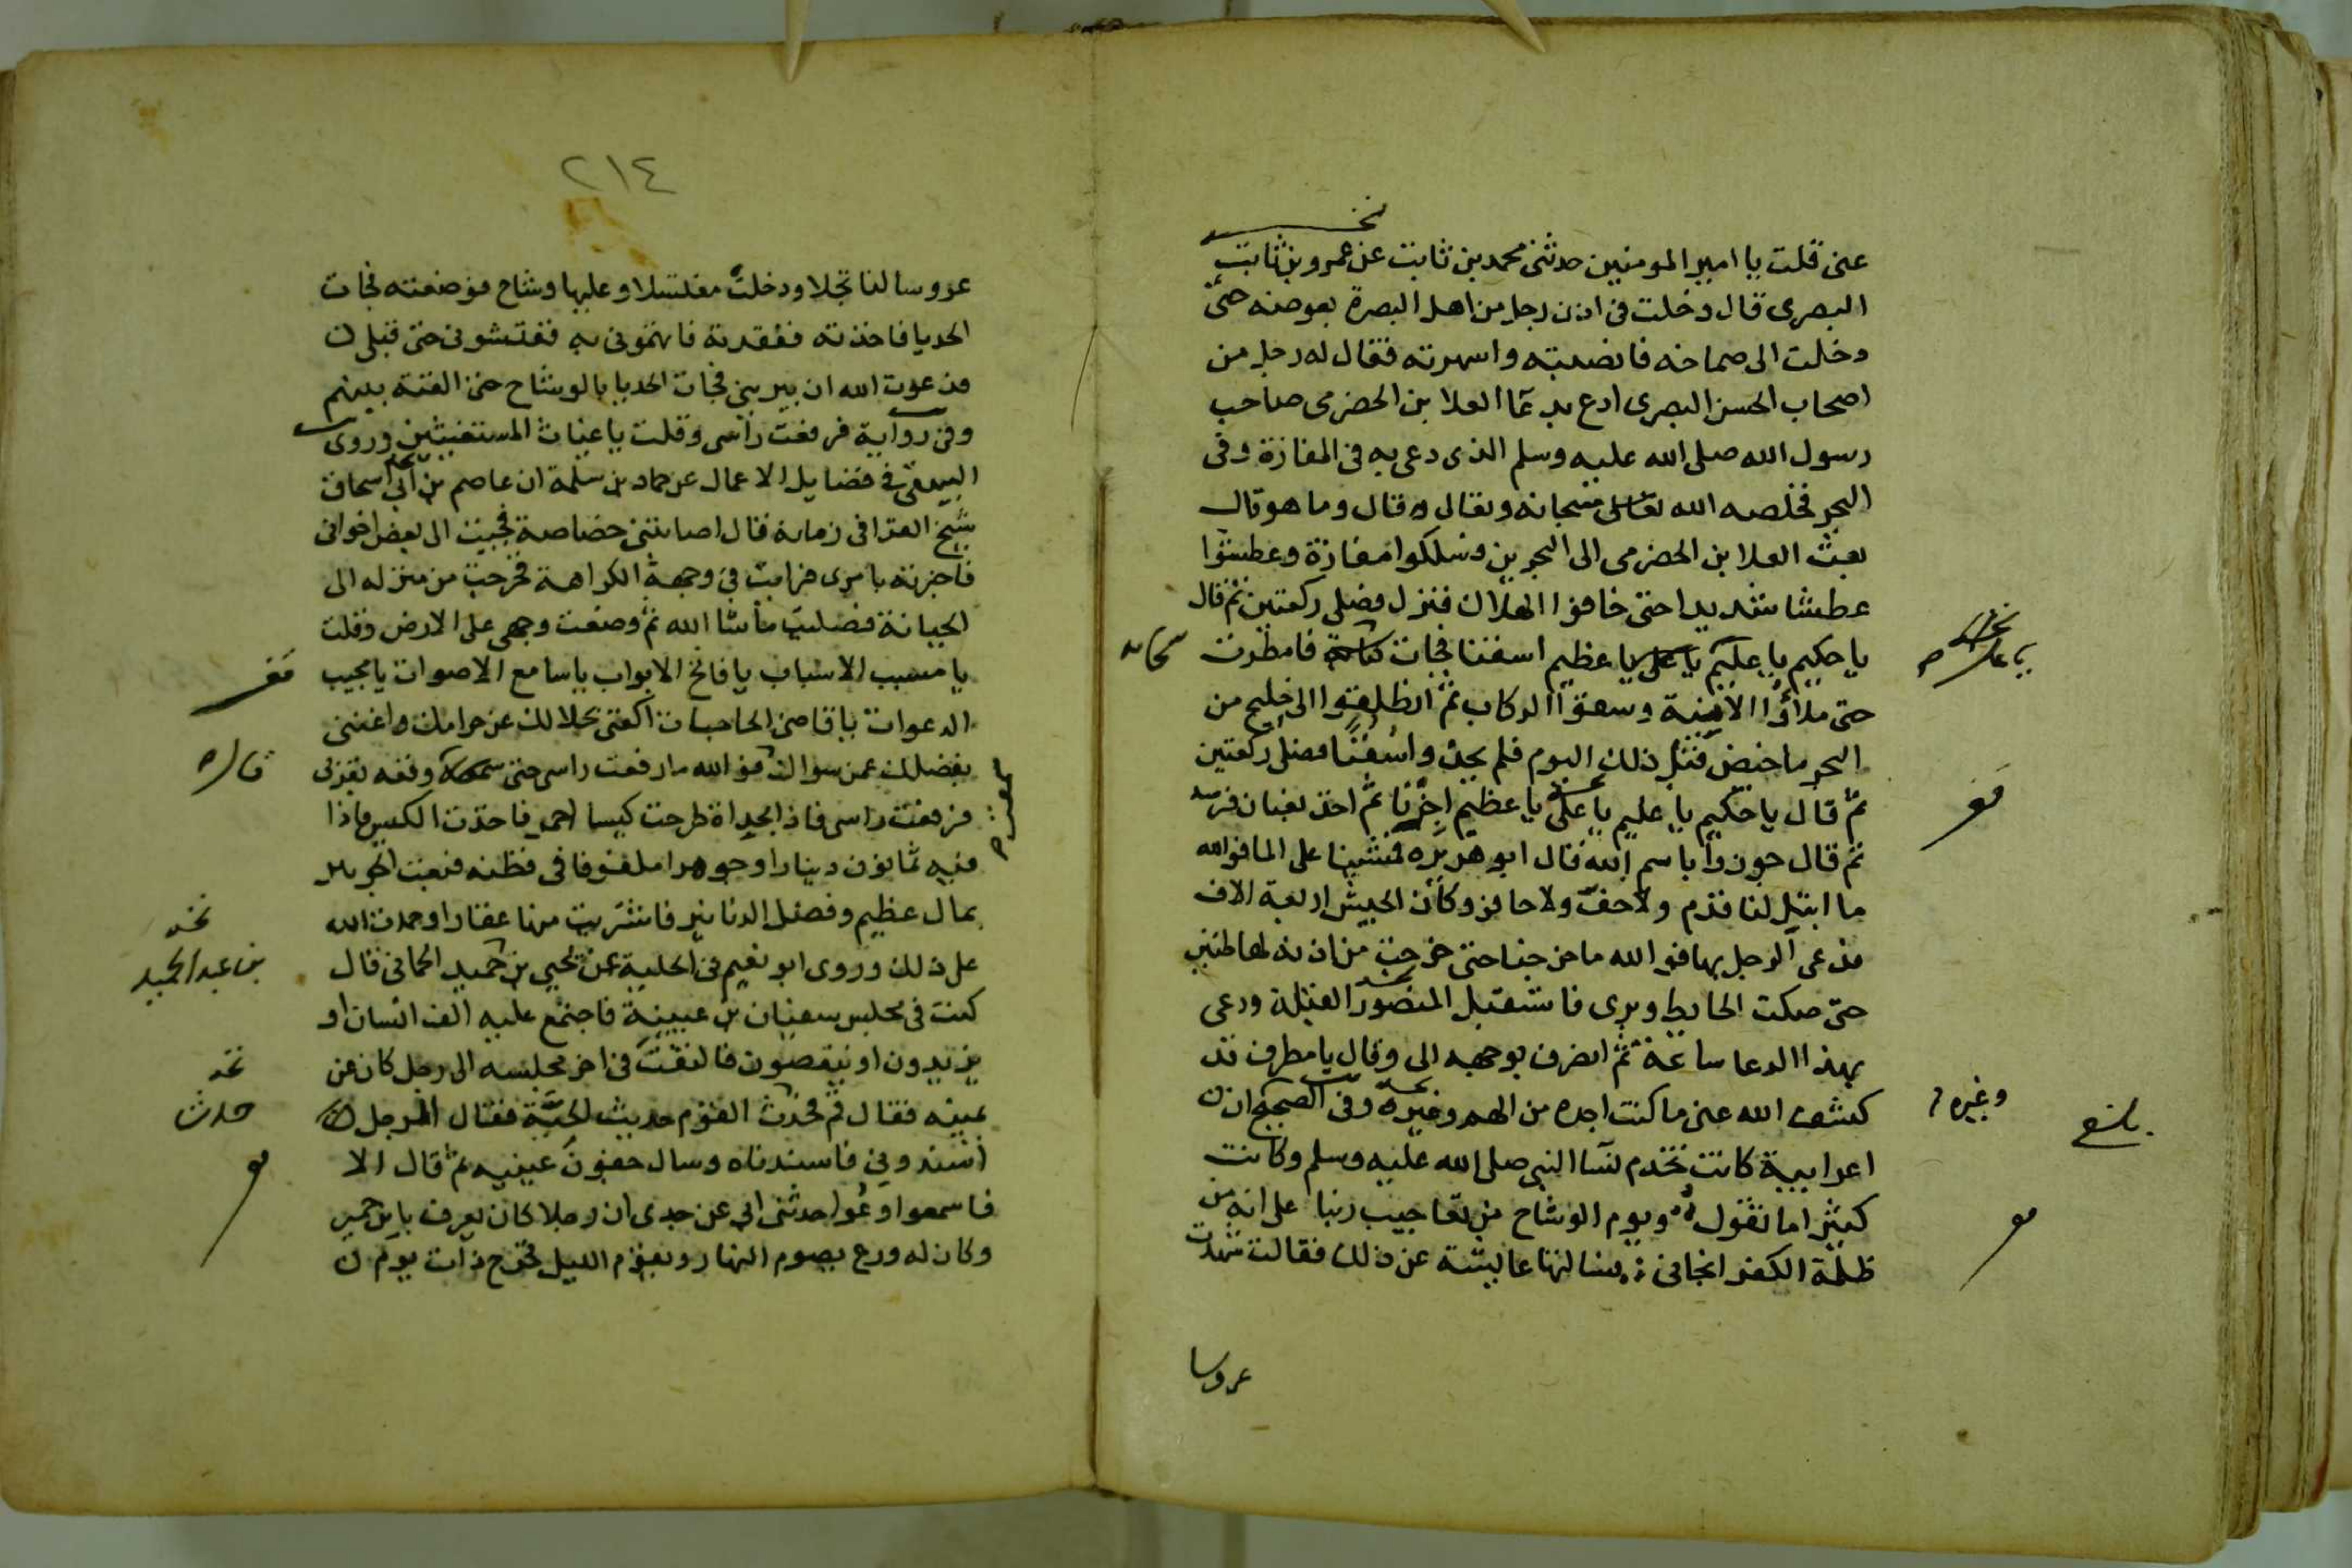 عنى قلت يا امير المومنين حدثنى محمد بن ثابت عن عمرو بن ثابت
البصرى قال دخلت فى اذن رجل من اهل البصرة بعوضه حتى
دخلت الى صماخه فانصبته واسهرته فقال له رجل من
اصحاب الحسن البصرى ادع بدعا العلا بن الحضرمى صاحب
رسول الله صلى الله عليه وسلم الذى دعى به فى المفازة وفى
البحر فخلصه الله تعالى سبحانه وتعالى قال وما هو قال
بعث العلا بن الحضرمى الى البحرين وسلكوا مفازة وعطشوا
عطشا شديدا حتى خافوا الهلاك فنزل فصلى ركعتين ثم قال
يا حكيم يا عليم يا على يا عظيم اسقنا فجات سحابه فامطرت
حتى ملاؤا الانية وسقوا الركاب ثم انطلقوا الى خليج من
البحر ما خيض قبل ذلك اليوم فلم نجد سفنا فصلى ركعتين
ثم قال يا حكيم يا عليم يا على يا عظيم اجزنا ثم اخذ بعنان فرسه
ثم قال جوزوا باسم الله قال ابو هريره فمشينا على الما فوالله
ما ابتل لنا قدم ولا خف ولا حافر وكان الجيش اربعة الاف
فدعى الرجل بها فوالله ما خرجنا حتى خرجت من اذنه لها طنين
حتى صكت الحايط وبرى فاستقبل المنصور القبلة ودعى
بهذا الدعا ساعة ثم انصرف بوجهه الى وقال يا مطرف قد
كشف الله عنى ما كنت اجده من الهم وغيره وفى الصحيح ان
اعرابية كانت تخدم نسا النبى صلى الله عليه وسلم وكانت
كثيرا ما تقول ويوم الوشاح من تعاجيب ربنا على انه من
ظلمة الكفر انجانى فسالتها عايشة عن ذلك فقالت شهدت
وغيره
بلغ
عروسا
٢١٤
عروسا لنا تجلا ودخلت مغتسلا وعليها وشاح فوضعته فجات
الحديا فاخذته ففقدته فاتهمونى به ففتشونى حتى قبلى
فدعوت الله ان يبرينى فجات الحديا بالوشاح حتى القته بينهم
وفى رواية فرفعت راسى وقلت يا غياث المستغيثين وروى
البيهقى فى فضايل الاعمال عن حماد بن سلمة ان عاصم بن ابى اسحاق
شيخ القرا فى زمانه قال اصابتنى خصاصة فجيت الى بعض اخوانى
فاخبرته بامرى فرايت فى وجهه الكراهة فخرجت من منزله الى
الجبانة فصليت ما شا الله ثم وضعت وجهى على الارض وقلت
يا مسبب الاسباب يا فاتح الابواب يا سامع الاصوات يا مجيب
الدعوات يا قاضى الحاجات اكفنى بحلالك عن حرامك واغننى
بفضلك عمن سواك فوالله ما رفعت راسى حتى سمعت وقعه بقربى
فرفعت راسى فاذا بحداة طرحت كيسا احمر فاخذت الكيس فاذا
فيه ثمانون دينارا وجوهرا ملفوفا فى قطنه فبعت الجوهر
بمال عظيم وفضل الدنانير فاشتريت منها عقارا وحمدت الله
على ذلك وروى ابو نعيم فى الحلية عن يحيى بن حميد الحمانى قال
بن عبد الحميد
كنت فى مجلس سفيان بن عيينة فاجتمع عليه الف انسان او
يزيدون او ينقصون فالتفت فى اخر مجلسه الى رجل كان عن
يمينه فقال قم فحدث القوم حديث الحية فقال الرجل
حدث
اسندونى فاسندناه وسال جفون عينيه ثم قال الا
فاسمعوا وعوا حدثنى ابى عن جدى ان رجلا كان يعرف بابن حمير
وكان له ورع يصوم النهار ويقوم الليل فخرج ذات يوم